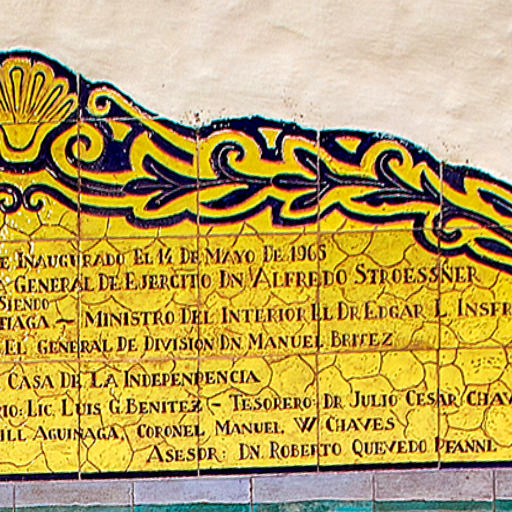 E INAUGURADO EL 14 DE MAYO DE 1965
GENERAL DE EJERCITO DN ALFREDO STROESSNER
SIENDO
TIAGA - MINISTRO DEL INTERIOR EL DR EDGAR L. INSFR
EL GENERAL DE DIVISION DN MANUEL BRITEZ
CASA DE LA INDEPENDENCIA
RIO: LIC. LUIS G. BENITEZ - TESORERO: DR JULIO CESAR CHAV
ILL AGUINAGA, CORONEL MANUEL W CHAVES
ASESOR: DN. ROBERTO QUEVEDO PFANNL